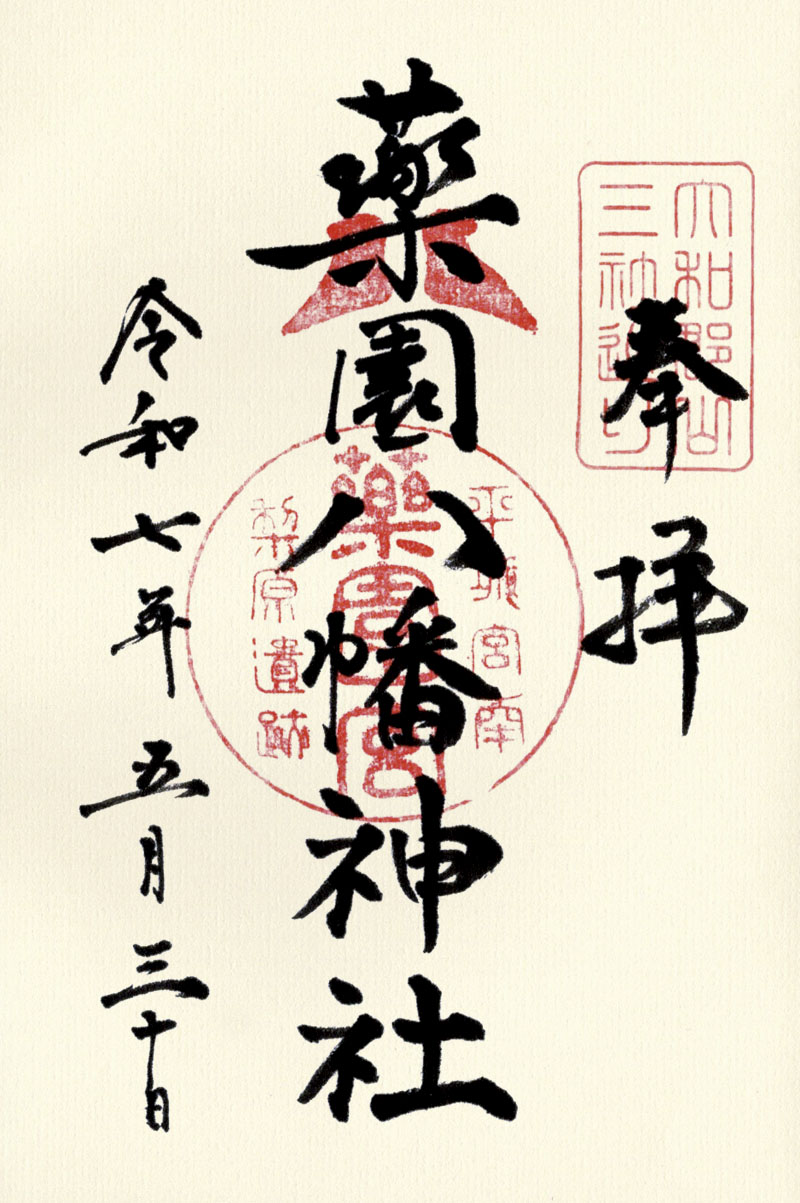 大和郡山
三社巡り
奉拝
平城宮南
薬園宮
梨原遺跡
薬園八幡神社
令和七年五月三十日